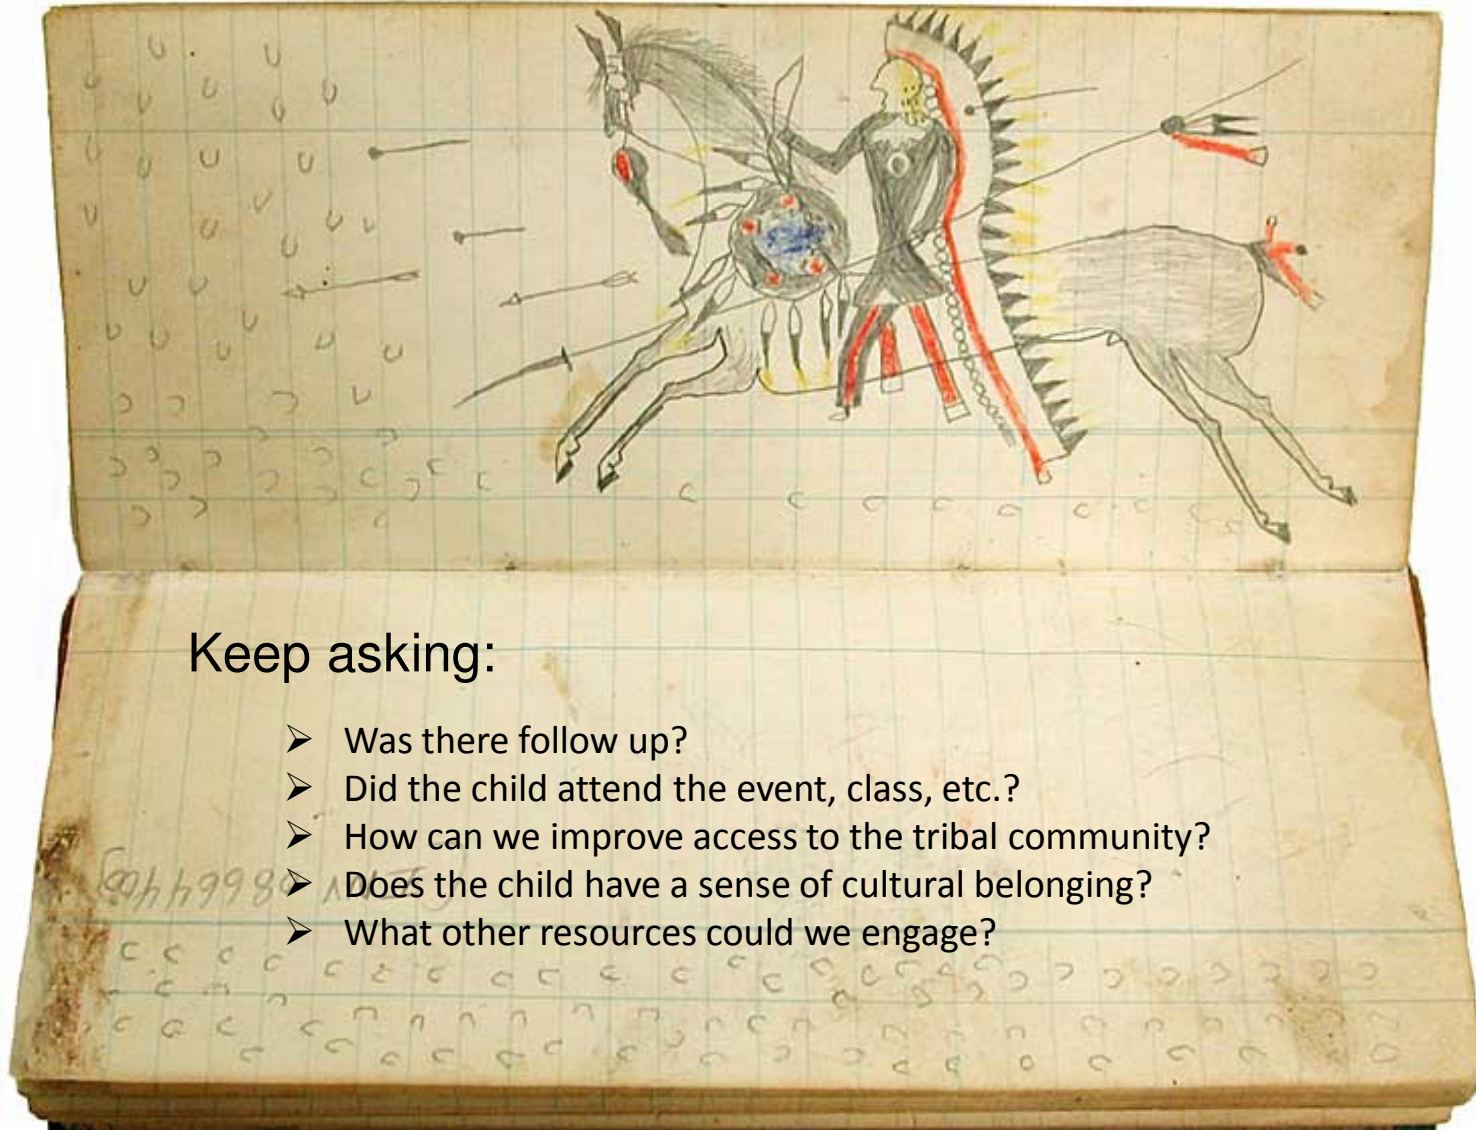 Keep asking:
➢ Was there follow up?
➢ Did the child attend the event, class, etc.?
➢ How can we improve access to the tribal community?
➢ Does the child have a sense of cultural belonging?
➢ What other resources could we engage?